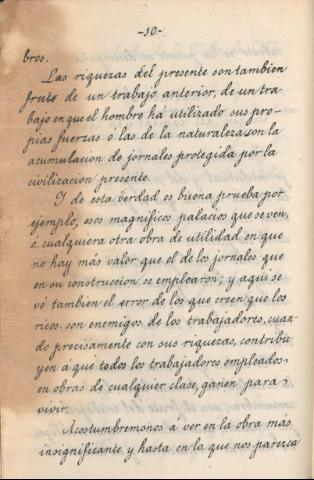 -10-
bros.
Las riquezas del presente son tambien
fruto de un trabajo anterior, de un tra-
bajo en que el hombre há utilizado sus pro-
pias fuerzas ó las de la naturaleza son la
acumulacion de jornales protegida por la
civilizacion presente.
Y de esta verdad es buena prueba por
ejemplo, esos magníficos palacios que se ven,
ó cualquiera otra obra de utilidad en que
no hay más valor que el de los jornales que
en su construccion se emplearon; y aqui se
vé tambien el error de los que creen que los
ricos son enemigos de los trabajadores, cuan-
do precisamente con sus riquezas, contribu-
yen á que todos los trabajadores empleados
en obras de cualquier clase, ganen para
vivir.
Acostumbremonos á ver en la obra más
insignificante y hasta en la que nos parezca